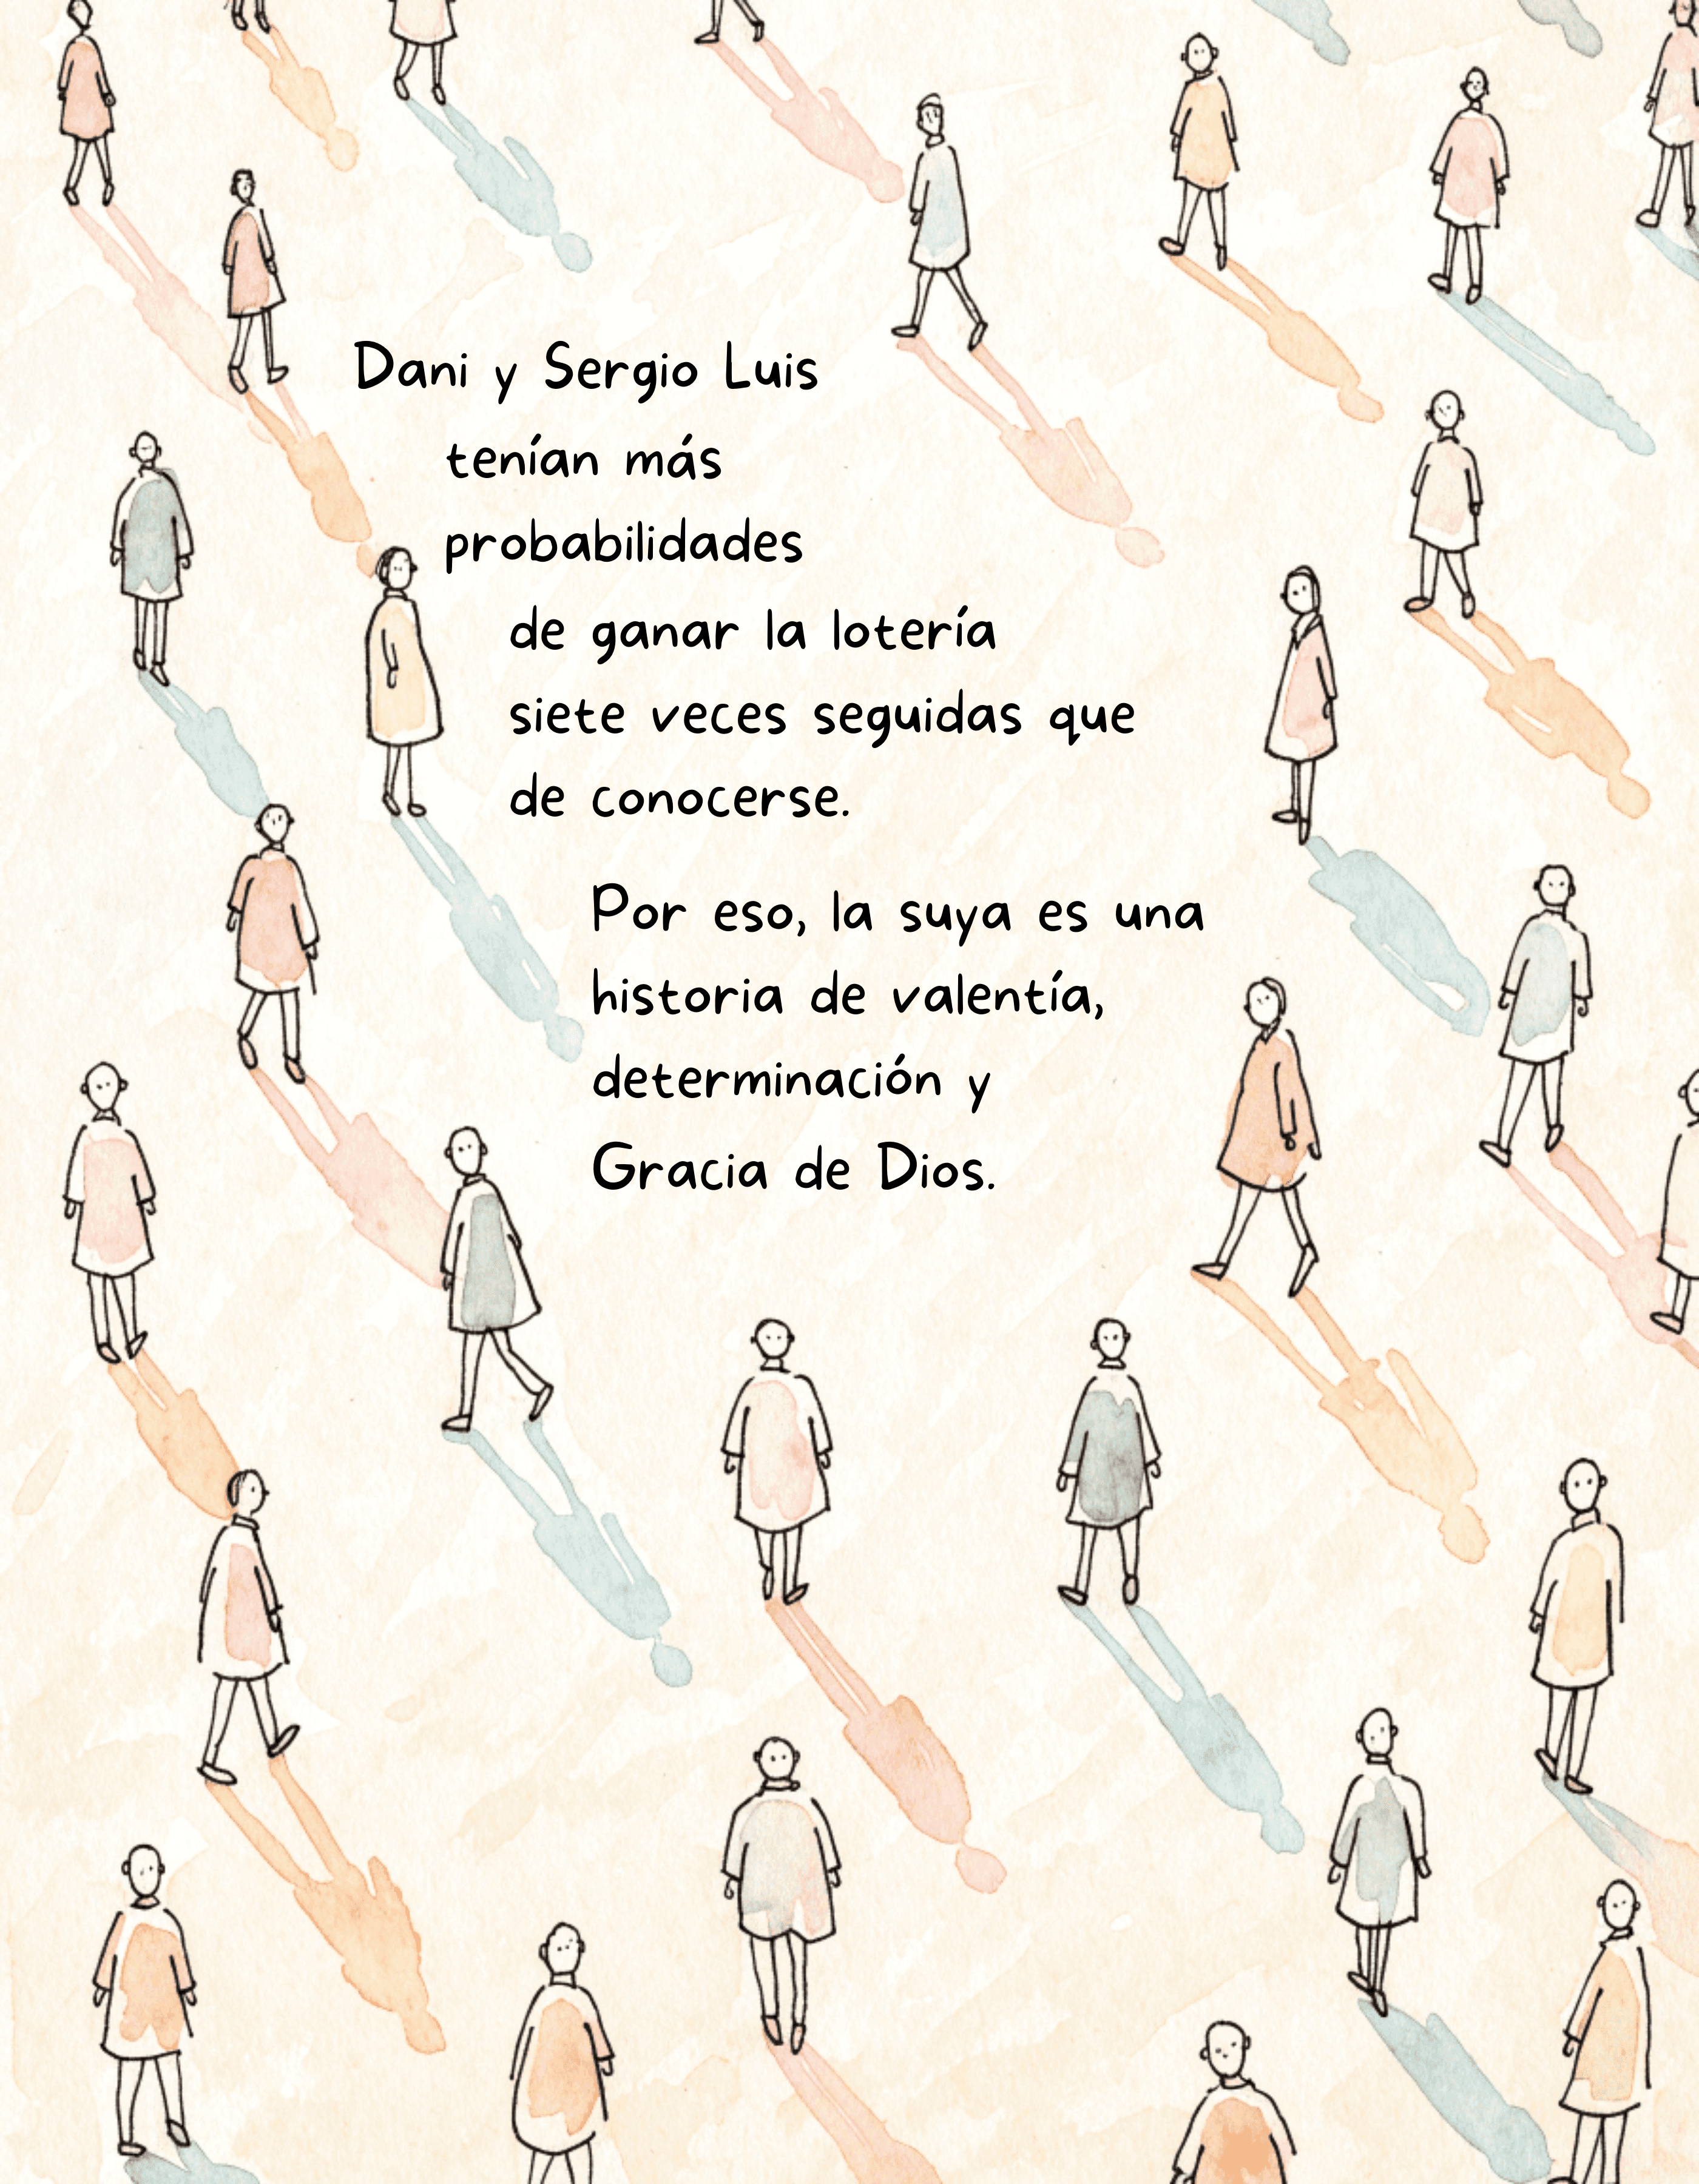 Dani y Sergio Luis
tenían más
probabilidades
de ganar la lotería
siete veces seguidas que
de conocerse.
Por eso, la suya es una
historia de valentía,
determinación y
Gracia de Dios.